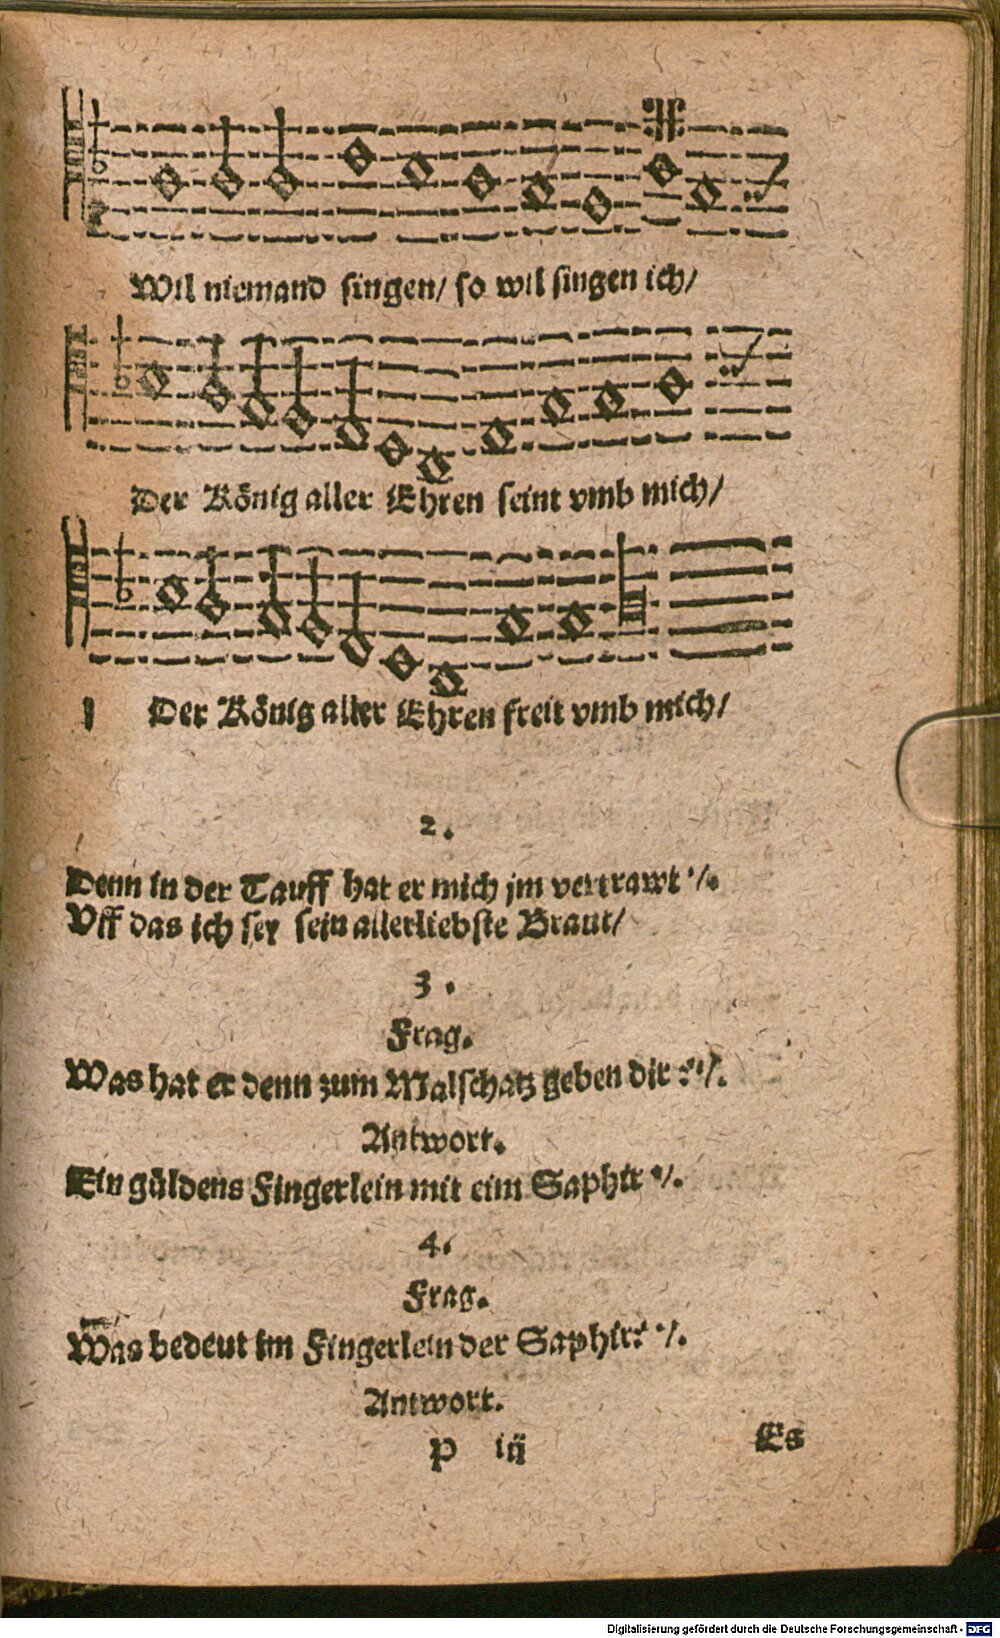 Wil niemand singen/ so wil singen ich/
Der König aller Ehren seint vmb mich/
1 Der König aller Ehren freit vmb mich/
2.
Denn in der Tauff hat er mich jm vertrawt ·/.
Vff das ich sey sein allerliebste Braut/
3.
Frag.
Was hat er denn zum Malschatz geben dir? ·/.
Antwort.
Ein güldens Fingerlein mit eim Saphir ·/.
4.
Frag.
Was bedeut im Fingerlein der Saphir? ·/.
Antwort.
P iij Es
Digitalisierung gefördert durch die Deutsche Forschungsgemeinschaft - DFG